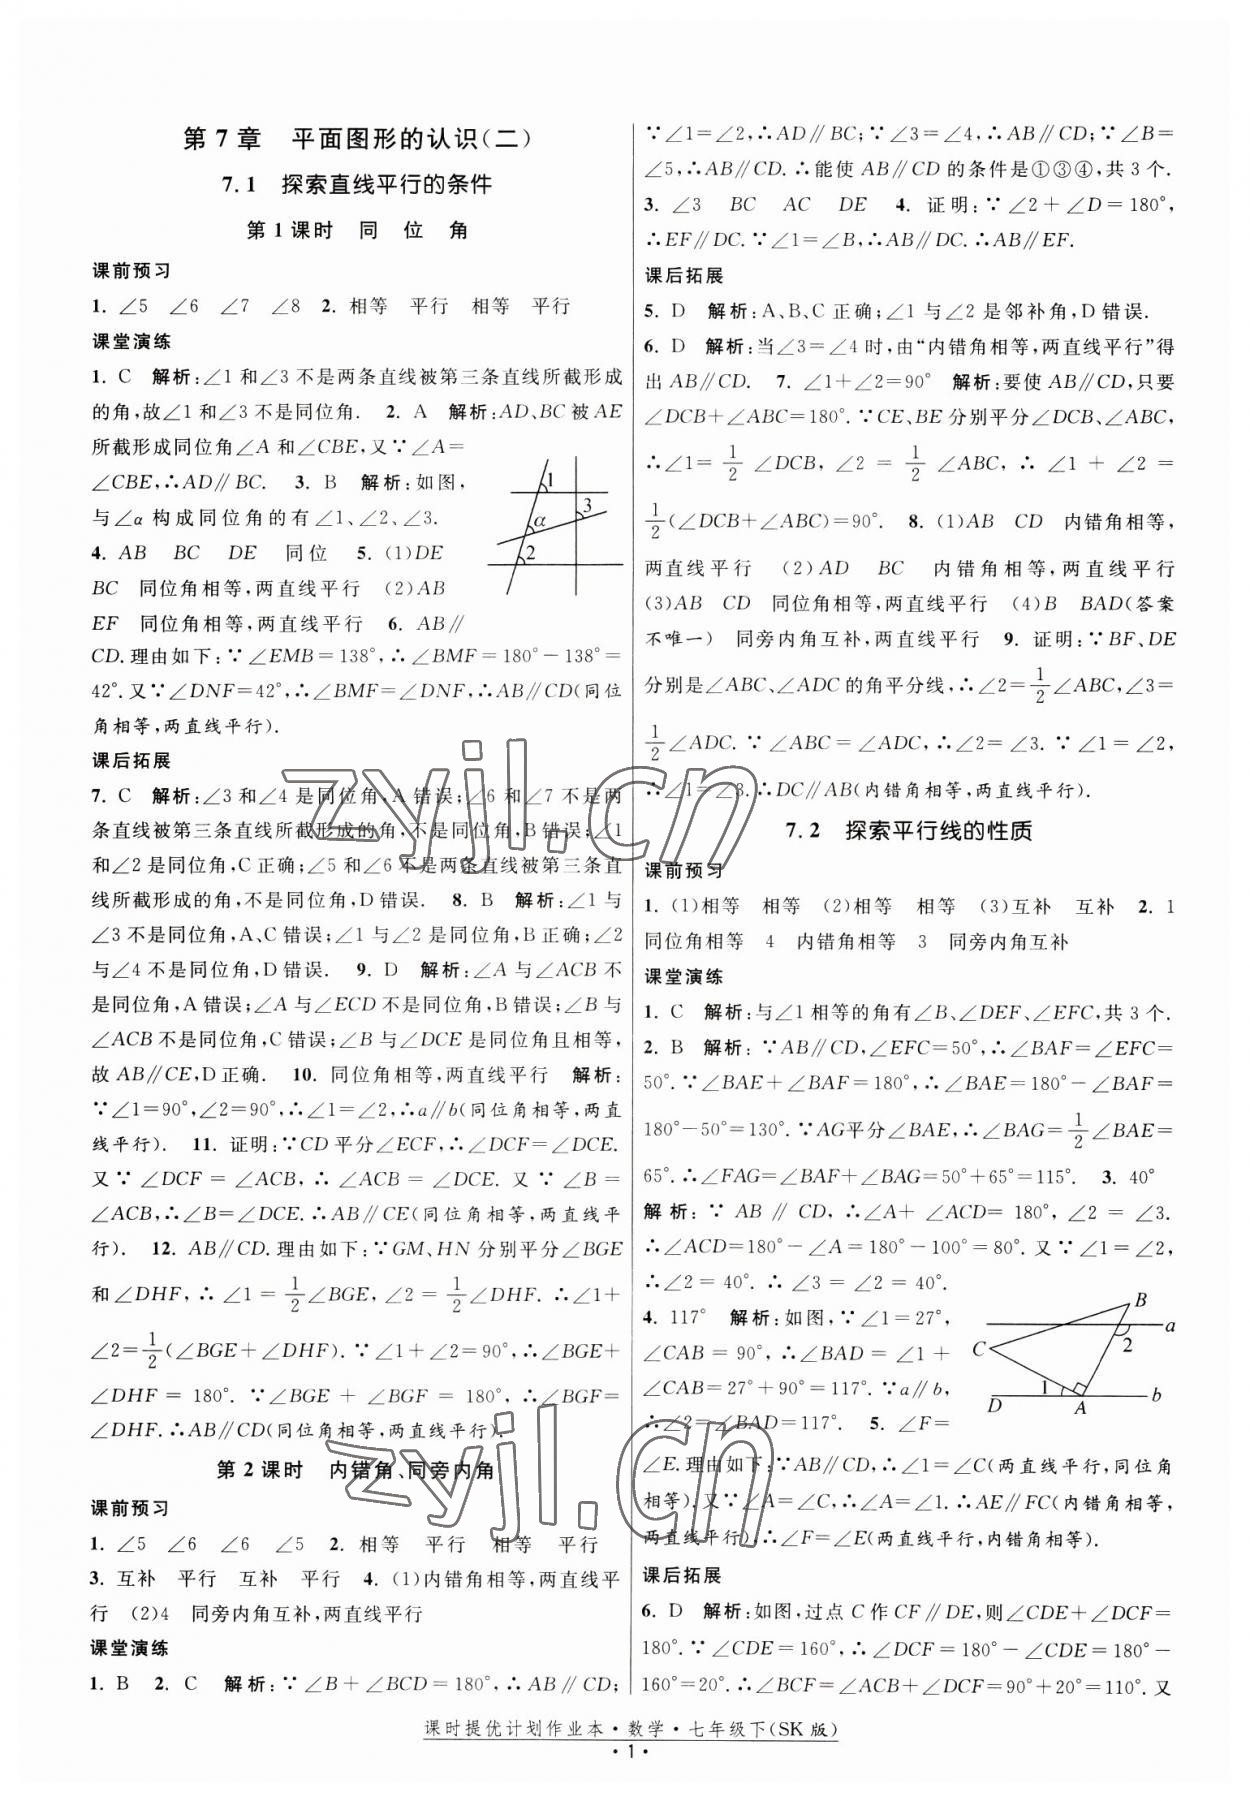 第 7 章　平面图形的认识(二)
7.1　探索直线平行的条件
第 1 课时　同　位　角
课前预习
1. ∠5　∠6　∠7　∠8　2. 相等　平行　相等　平行
课堂演练
1. C　解析:∠1 和∠3 不是两条直线被第三条直线所截形成
的角,故∠1 和∠3 不是同位角.　2. A　解析:AD、BC 被 AE
所截形成同位角∠A 和∠CBE,又∵∠A=
∠CBE,∴AD∥BC.　3. B　解析:如图,
与∠α 构成同位角的有∠1、∠2、∠3.
4. AB　BC　DE　同位　5. (1)DE
BC　同位角相等,两直线平行　(2)AB
EF　同位角相等,两直线平行　6. AB∥
CD.理由如下:∵∠EMB=138°,∴∠BMF=180°-138°=
42°.又∵∠DNF=42°,∴∠BMF=∠DNF,∴AB∥CD(同位
角相等,两直线平行).
1
α
3
2
课后拓展
7. C　解析:∠3 和∠4 是同位角,A 错误;∠6 和∠7 不是两
条直线被第三条直线所截形成的角,不是同位角,B 错误;∠1
和∠2 是同位角,C 正确;∠5 和∠6 不是两条直线被第三条直
线所截形成的角,不是同位角,D 错误.　8. B　解析:∠1 与
∠3 不是同位角,A、C 错误;∠1 与∠2 是同位角,B 正确;∠2
与∠4 不是同位角,D 错误.　9. D　解析:∠A 与∠ACB 不
是同位角,A 错误;∠A 与∠ECD 不是同位角,B 错误;∠B 与
∠ACB 不是同位角,C 错误;∠B 与∠DCE 是同位角且相等,
故 AB∥CE,D 正确.　10. 同位角相等,两直线平行　解析:
∵∠1=90°,∠2=90°,∴∠1=∠2,∴a∥b(同位角相等,两直
线平行).　11. 证明:∵CD 平分∠ECF,∴∠DCF=∠DCE.
又∵∠DCF=∠ACB,∴∠ACB=∠DCE. 又∵∠B=
∠ACB,∴∠B=∠DCE.∴AB∥CE(同位角相等,两直线平
行).　12. AB∥CD.理由如下:∵GM、HN 分别平分∠BGE
和∠DHF,∴∠1=1/2∠BGE,∠2=1/2∠DHF.∴∠1+
∠2=1/2(∠BGE+∠DHF).∵∠1+∠2=90°,∴∠BGE+
∠DHF=180°.∵∠BGE+∠BGF=180°,∴∠BGF=
∠DHF.∴AB∥CD(同位角相等,两直线平行).
第 2 课时　内错角、同旁内角
课前预习
1. ∠5　∠6　∠6　∠5　2. 相等　平行　相等　平行
3. 互补　平行　互补　平行　4. (1)内错角相等,两直线平
行　(2)4　同旁内角互补,两直线平行
课堂演练
1. B　2. C　解析:∵∠B+∠BCD=180°,∴AB∥CD;
∵∠1=∠2,∴AD∥BC;∵∠3=∠4,∴AB∥CD;∵∠B=
∠5,∴AB∥CD.∴能使 AB∥CD 的条件是①③④,共 3 个.
3. ∠3　BC　AC　DE　4. 证明:∵∠2+∠D=180°,
∴EF∥DC.∵∠1=∠B,∴AB∥DC.∴AB∥EF.
课后拓展
5. D　解析:A、B、C 正确;∠1 与∠2 是邻补角,D 错误.
6. D　解析:当∠3=∠4 时,由“内错角相等,两直线平行”得
出 AB∥CD.　7. ∠1+∠2=90°　解析:要使 AB∥CD,只要
∠DCB+∠ABC=180°.∵CE、BE 分别平分∠DCB、∠ABC,
∴∠1=1/2∠DCB,∠2=1/2∠ABC,∴∠1+∠2=
1/2(∠DCB+∠ABC)=90°.　8. (1)AB　CD　内错角相等,
两直线平行　(2)AD　BC　内错角相等,两直线平行
(3)AB　CD　同位角相等,两直线平行　(4)B　BAD(答案
不唯一)　同旁内角互补,两直线平行　9. 证明:∵BF、DE
分别是∠ABC、∠ADC 的角平分线,∴∠2=1/2∠ABC,∠3=
1/2∠ADC.∵∠ABC=∠ADC,∴∠2=∠3.∵∠1=∠2,
∴∠1=∠3.∴DC∥AB(内错角相等,两直线平行).
7.2　探索平行线的性质
课前预习
1. (1)相等　相等　(2)相等　相等　(3)互补　互补　2. 1
同位角相等　4　内错角相等　3　同旁内角互补
课堂演练
1. C　解析:与∠1 相等的角有∠B、∠DEF、∠EFC,共 3 个.
2. B　解析:∵AB∥CD,∠EFC=50°,∴∠BAF=∠EFC=
50°.∵∠BAE+∠BAF=180°,∴∠BAE=180°-∠BAF=
180°-50°=130°.∵AG平分∠BAE,∴∠BAG=1/2∠BAE=
65°.∴∠FAG=∠BAF+∠BAG=50°+65°=115°.　3. 40°
解析:∵AB∥CD,∴∠A+∠ACD=180°,∠2=∠3.
∴∠ACD=180°-∠A=180°-100°=80°. 又∵∠1=∠2,
∴∠2=40°.∴∠3=∠2=40°.
4. 117°　解析:如图,∵∠1=27°,
∠CAB=90°,∴∠BAD=∠1+
∠CAB=27°+90°=117°.∵a∥b,
∴∠2=∠BAD=117°.　5. ∠F=
∠E.理由如下:∵∠1=∠C(两直线平行,同位角
相等),又∵∠A=∠C,∴∠A=∠1.∴AE∥FC(内错角相等,
两直线平行)∴∠F=∠E(两直线平行,内错角相等).
B
a
C
2
1
D
A
b
课后拓展
6. D　解析:如图,过点 C 作 CF∥DE,则∠CDE+∠DCF=
180°.∵∠CDE=160°,∴∠DCF=180°-∠CDE=180°-
160°=20°.∴∠BCF=∠BCD+∠DCF=90°+20°=110°. 又
课时提优计划作业本·数学·七年级下(SK 版)
· 1 ·
zyjl.cn
zyjl.cn